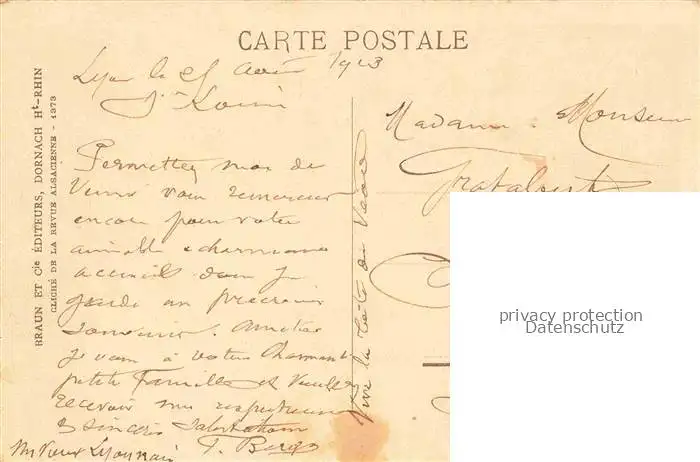 CARTE POSTALE
Lyon le 25 Août 1913
St Louis
Permettez moi de
venir vous remercier
encore pour votre
aimable & charmant
accueil dont je
garde un précieux
souvenir.
je vous à votre charmante
petite Famille et Veuillez
recevoir mes respectueuses
& sincères Salutations
Vive la Fête de
Madame. Monsieur
BRAUN ET Cie ÉDITEURS, DORNACH Ht-RHIN
CLICHÉ DE LA REVUE ALSACIENNE - 1373
privacy protection
Datenschutz